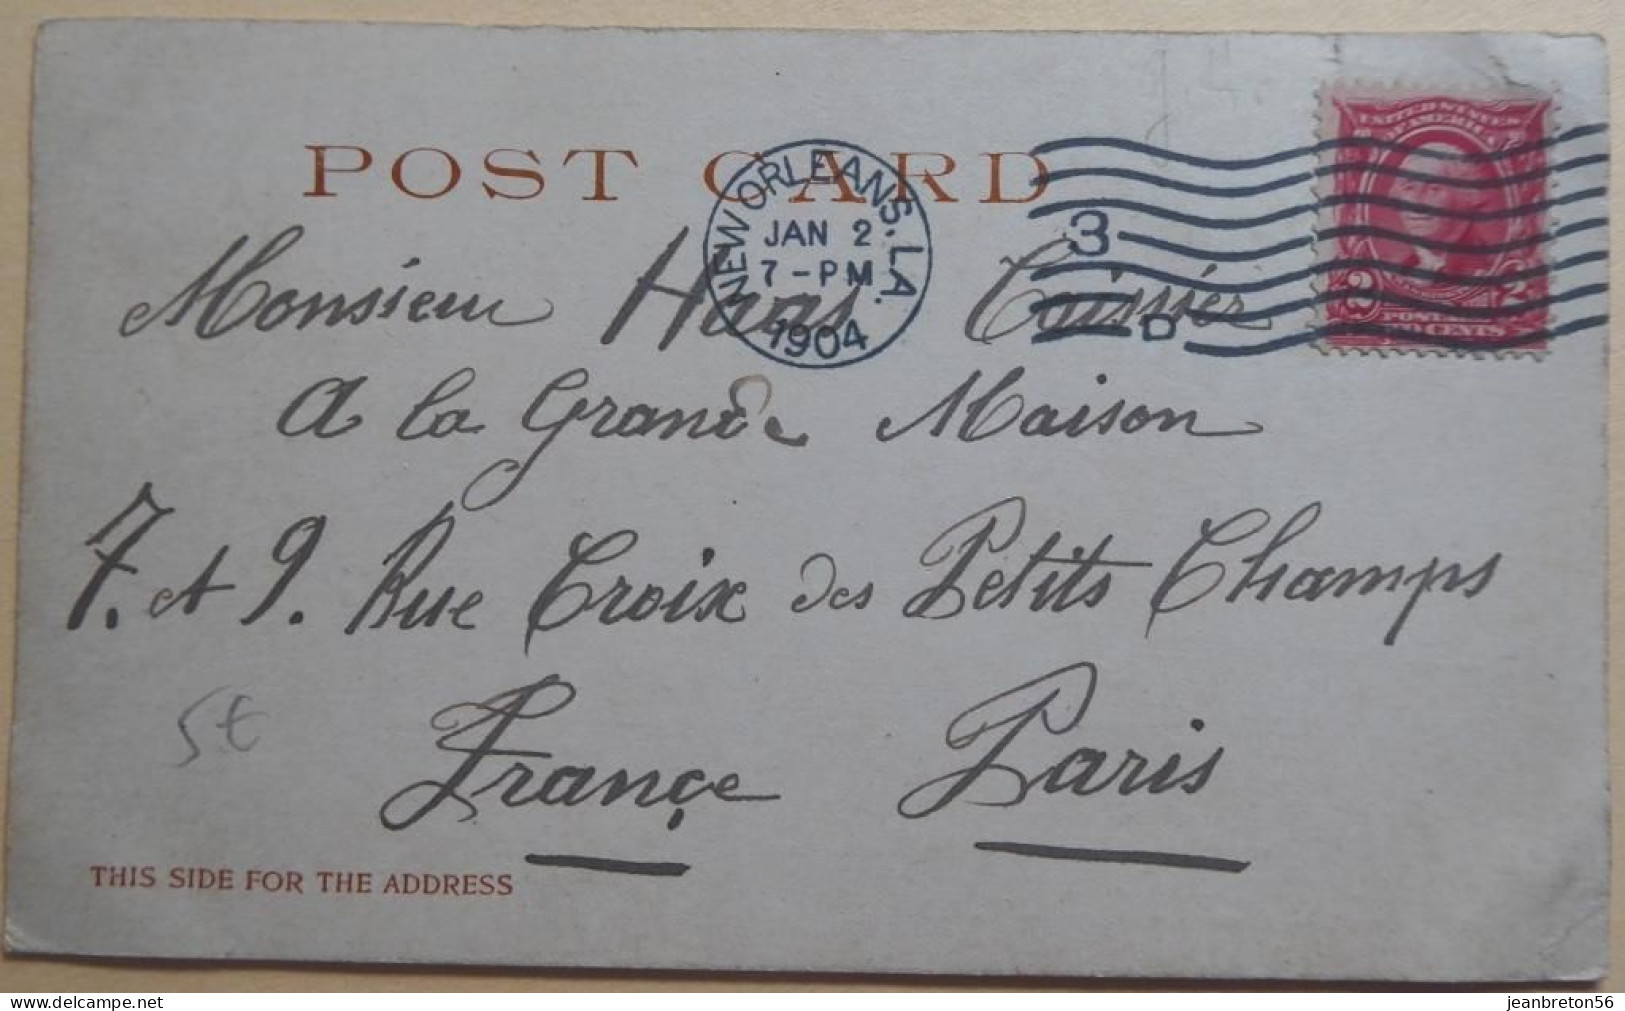 POST CARD
NEW ORLEANS, LA.
JAN 2
7-PM
1904
3
D
UNITED STATES
OF AMERICA
2 2
POSTAGE
TWO CENTS
Monsieur Haas Caissier
A la Grande Maison
7. et 9. Rue Croix des Petits Champs
5€
Françe Paris
THIS SIDE FOR THE ADDRESS
delcampe.net
jeanbreton56